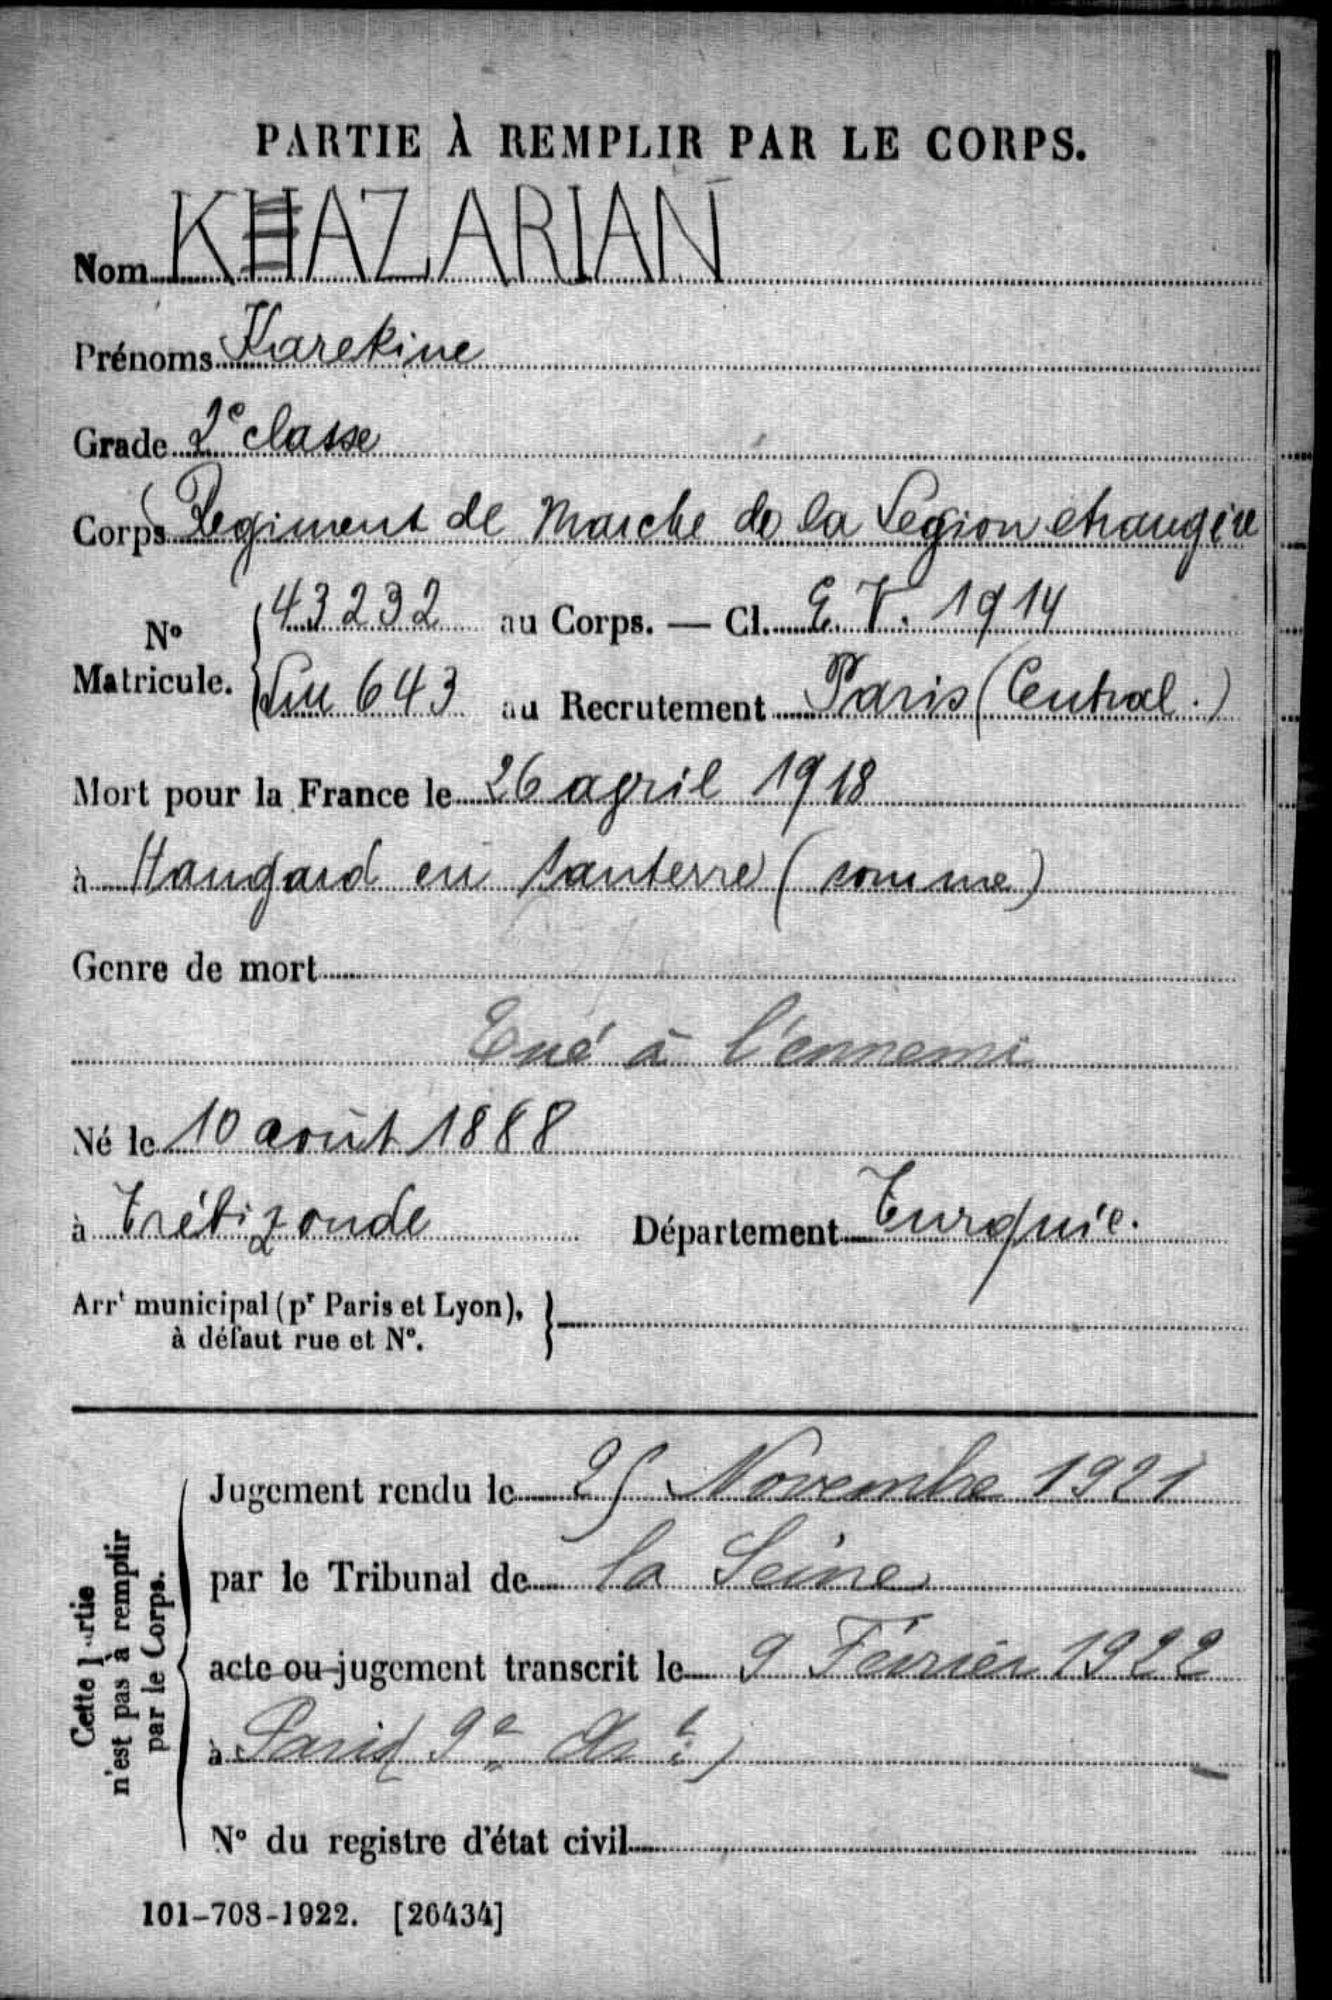 PARTIE À REMPLIR PAR LE CORPS.
Nom KHAZARIAN
Prénoms Karekine
Grade 2e classe
Corps Regiment de Marche de la Legion etrangère
N° Matricule. 43232 au Corps. — Cl. E. V. 1914
643 au Recrutement Paris (Central.)
Mort pour la France le 26 april 1918
à Hangard en Santerre (somme)
Genre de mort
Tué à l'ennemi
Né le 10 août 1888
à Trébizonde Département Turquie.
Arrt municipal (pr Paris et Lyon), à défaut rue et N°.
Cette partie n'est pas à remplir par le Corps.
Jugement rendu le 25 Novembre 1921
par le Tribunal de la Seine
acte ou jugement transcrit le 9 Février 1922
à Paris (9e Art)
N° du registre d'état civil
101-708-1922. [26434]